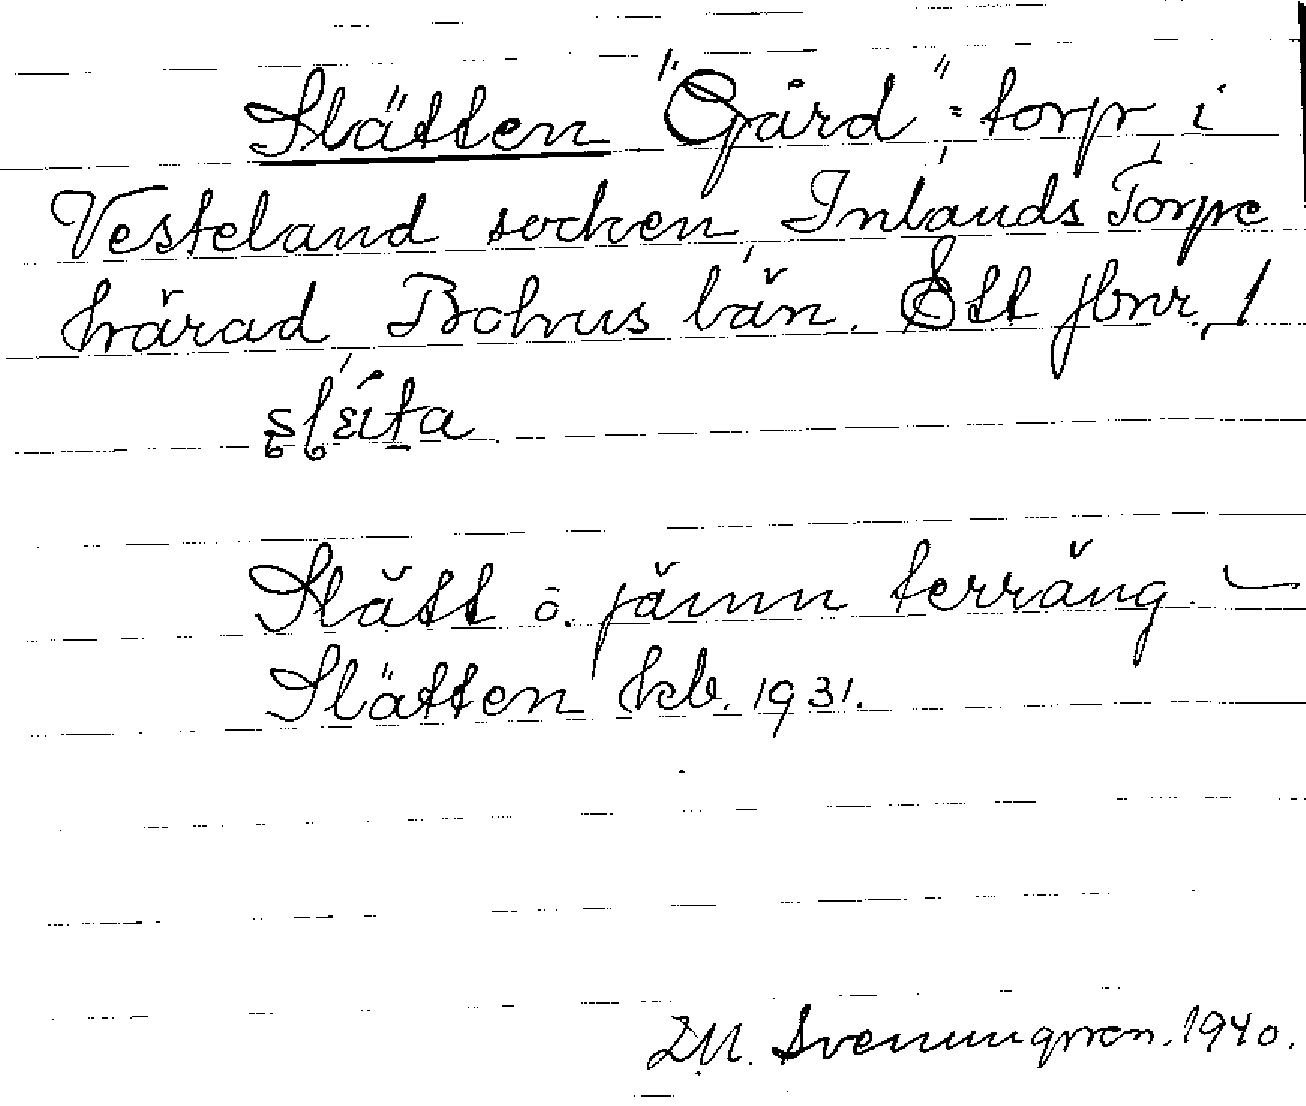 Slätten "Gård" = torp i
Vesteland socken, Inlands Torpe
härad, Bohus län. Ett jbnr. 1
Slätt o. jämn terräng. —
Slätten kb. 1931.
Svenungsson. 1940.